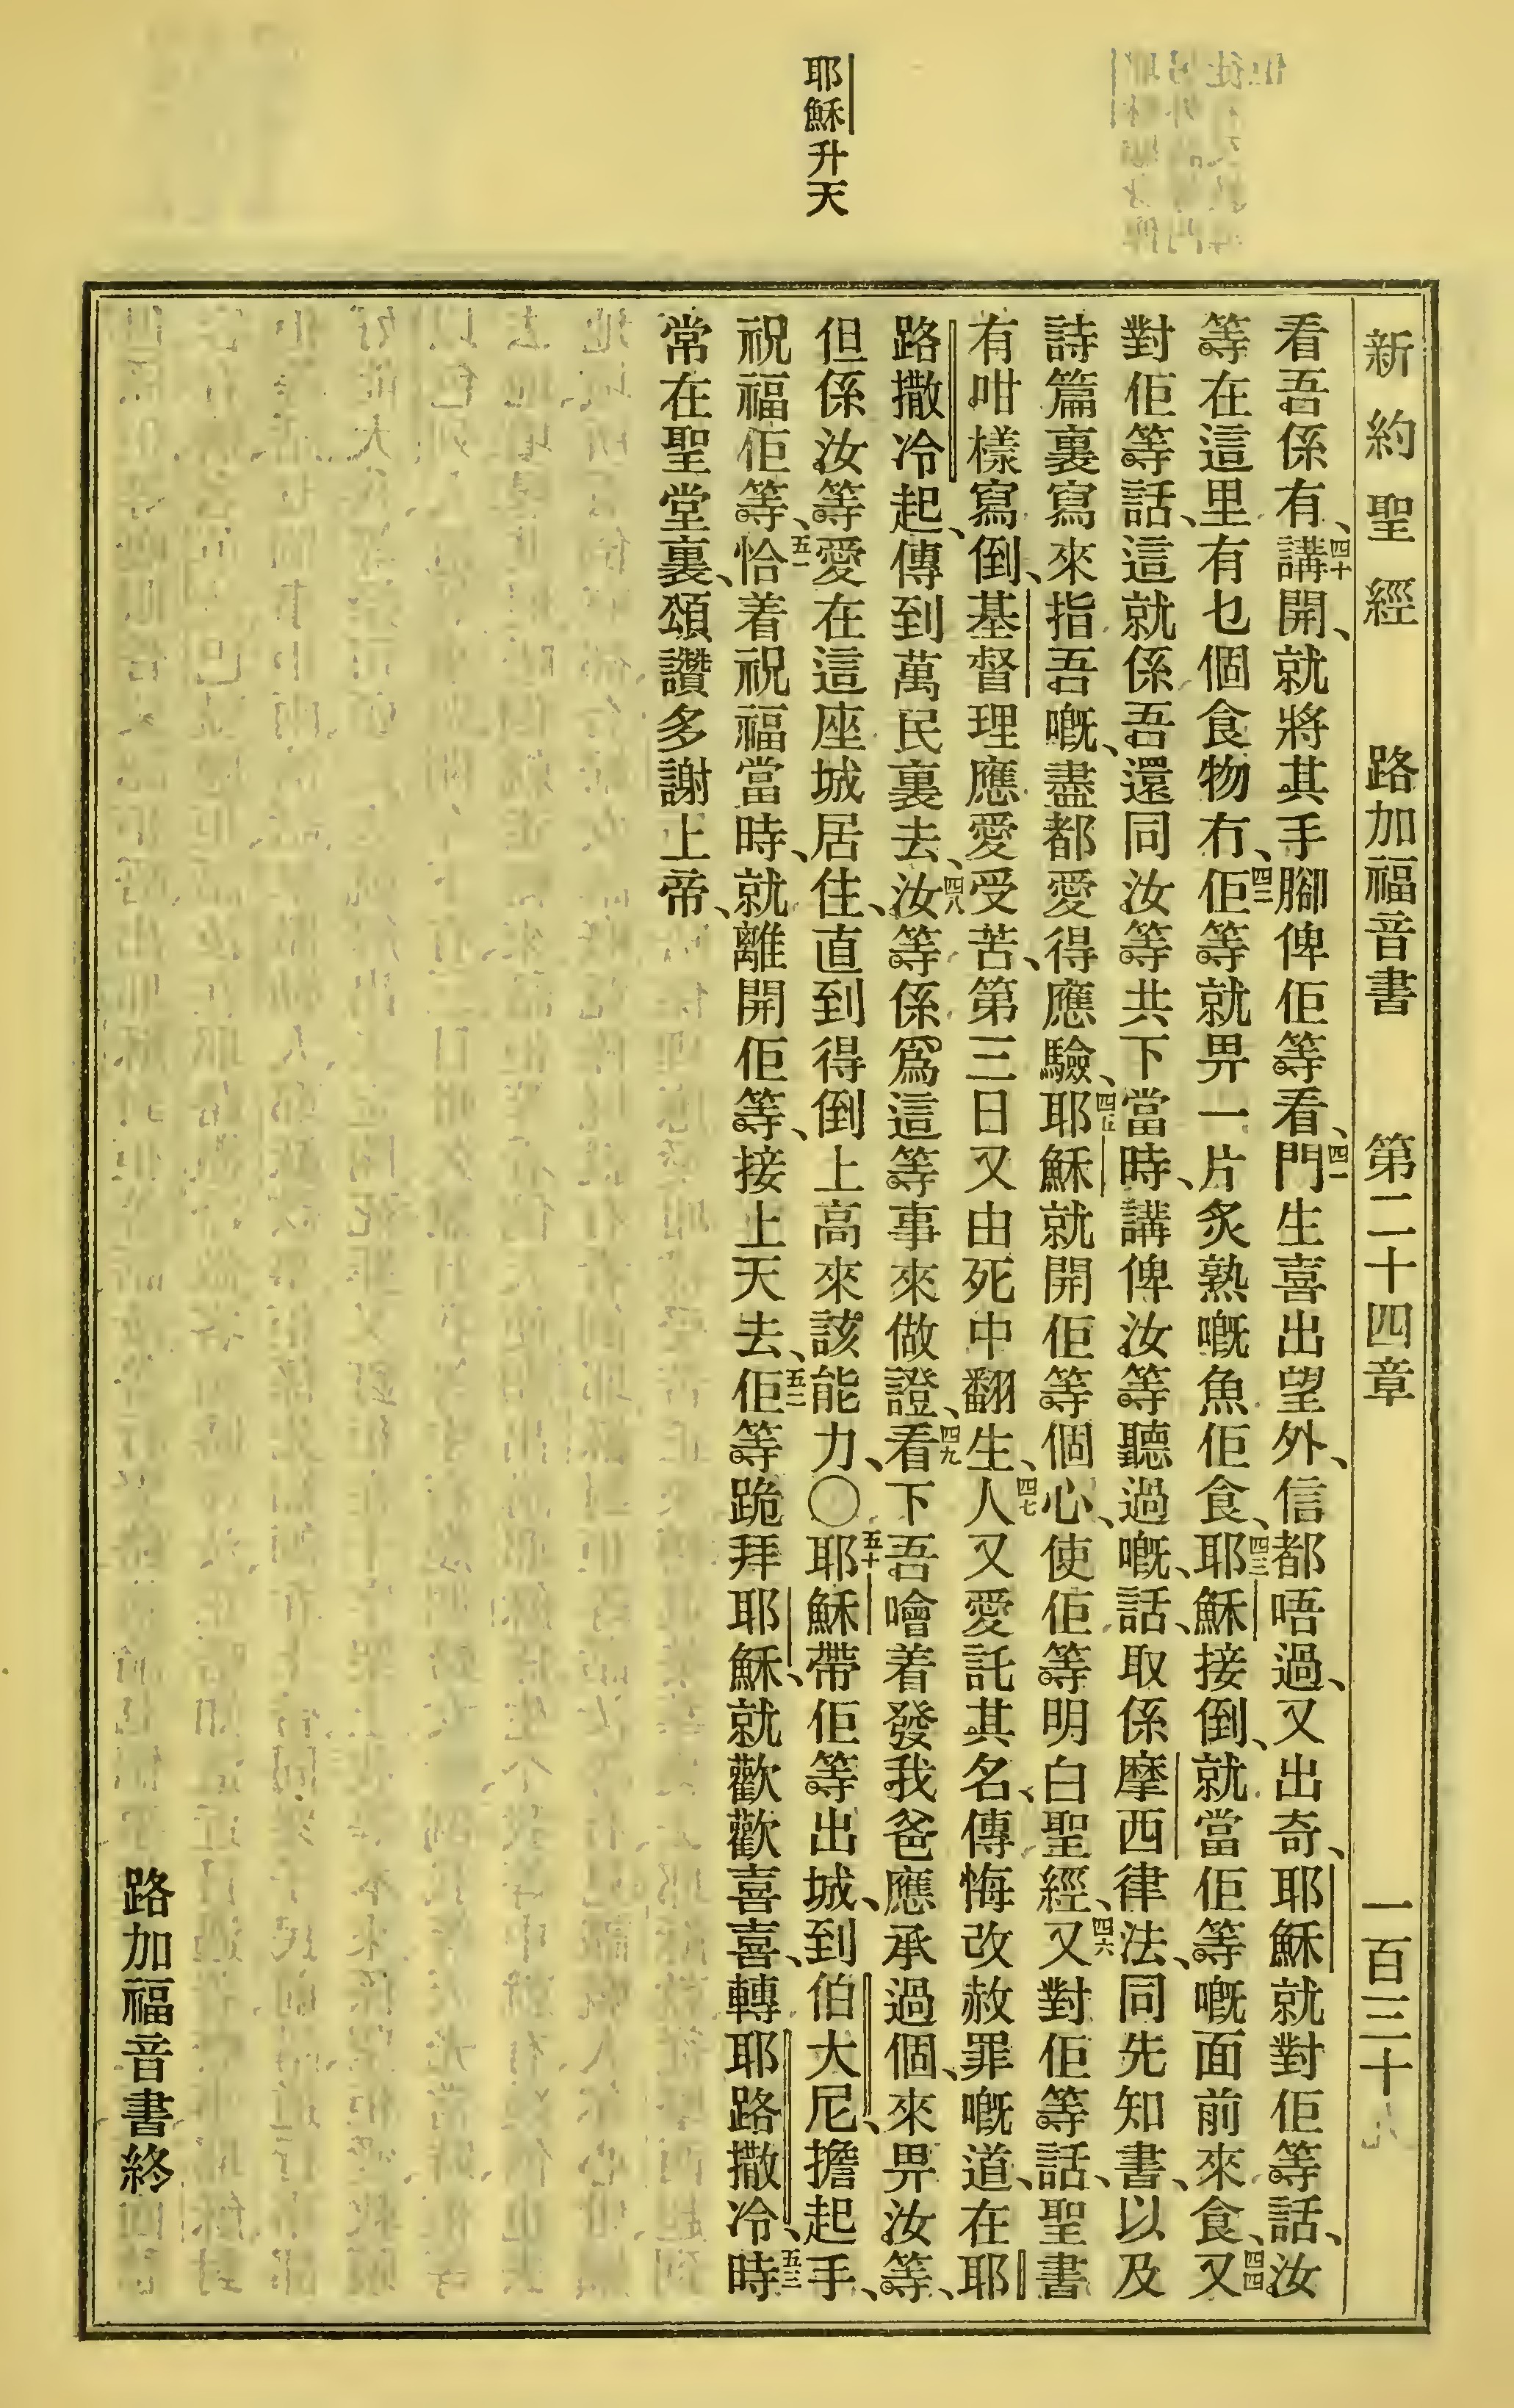 新約聖經　路加福音書　第二十四章　一百三十
耶穌升天
看吾係有、四十講開、就將其手腳俾佢等看、四一門生喜出望外、信都唔過、又出奇、耶穌就對佢等話、汝
等在這里有乜個食物冇、四二佢等就畀一片炙熟嘅魚佢食、四三耶穌接倒、就當佢等嘅面前來食、四四又
對佢等話、這就係吾還同汝等共下當時、講俾汝等聽過嘅、話、取係摩西律法、同先知書、以及
詩篇裏寫來指吾嘅、盡都愛得應驗、四五耶穌就開佢等個心、使佢等明白聖經、四六又對佢等話、聖書
有咁樣寫倒、基督理應愛受苦、第三日又由死中翻生、四七人又愛託其名、傳悔改赦罪嘅道、在耶
路撒冷起、傳到萬民裏去、四八汝等係爲這等事來做證、四九看下吾噲着發我爸應承過個、來畀汝等、
但係汝等愛在這座城居住、直到得倒上高來該能力、〇五十耶穌帶佢等出城、到伯大尼、擔起手、
祝福佢等、五一恰着祝福當時、就離開佢等、接上天去、五二佢等跪拜耶穌、就歡歡喜喜、轉耶路撒冷、五三時
常在聖堂裏、頌讚多謝上帝、
路加福音書終